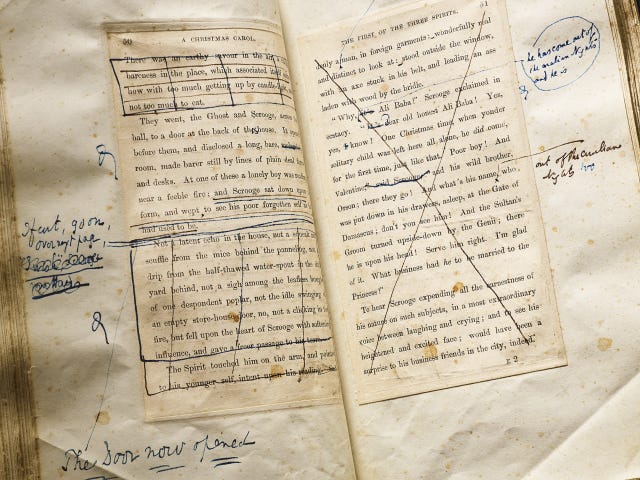 50 A CHRISTMAS CAROL.
There was an earthy savour in the
bareness in the place, which associated itself
how with too much getting up by candle-light,
not too much to eat.
They went, the Ghost and Scrooge, across
hall, to a door at the back of the house. It opened
before them, and disclosed a long, bare,
room, made barer still by lines of plain deal
and desks. At one of these a lonely boy was reading
near a feeble fire; and Scrooge sat down upon
form, and wept to see his poor forgotten self
had used to be.
Not a latent echo in the house, not a squeak
scuffle from the mice behind the panneling,
drip from the half-thawed water-spout in the
yard behind, not a sigh among the leafless boughs
of one despondent poplar, not the idle swinging
an empty store-house door, no, not a clicking in
fire, but fell upon the heart of Scrooge with
influence, and gave a freer passage to his tears.
The Spirit touched him on the arm, and pointed
to his younger self, intent upon his reading.
If cut, go on,
over next page,
The Door now opened
THE FIRST OF THE THREE SPIRITS. 51
a man, in foreign garments: wonderfully real
and distinct to look at: stood outside the window,
with an axe stuck in his belt, and leading an ass
laden with wood by the bridle.
"Why, Ali Baba!" Scrooge exclaimed in
ecstacy. "It's dear old honest Ali Baba! Yes,
yes, I know! One Christmas time, when yonder
solitary child was left here all alone, he did come,
for the first time, just like that. Poor boy! And
Valentine," said Scrooge, "and his wild brother,
Orson; there they go! And what's his name, who
was put down in his drawers, asleep, at the Gate of
Damascus; don't you see him! And the Sultan's
Groom turned upside-down by the Genii; there
he is upon his head! Serve him right. I'm glad
of it. What business had he to be married to the
Princess!"
To hear Scrooge expending all the earnestness of
his nature on such subjects, in a most extraordinary
voice between laughing and crying; and to see his
heightened and excited face; would have been a
surprise to his business friends in the city, indeed.
E 2
he has come out of
the Arabian Nights
and he is
out of the Arabian
Nights too